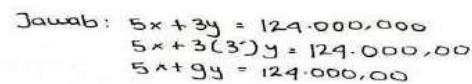 Jawab: 5x + 3y = 124.000,000
5x + 3(3)y = 124.000,00
5x + 9y = 124.000,00